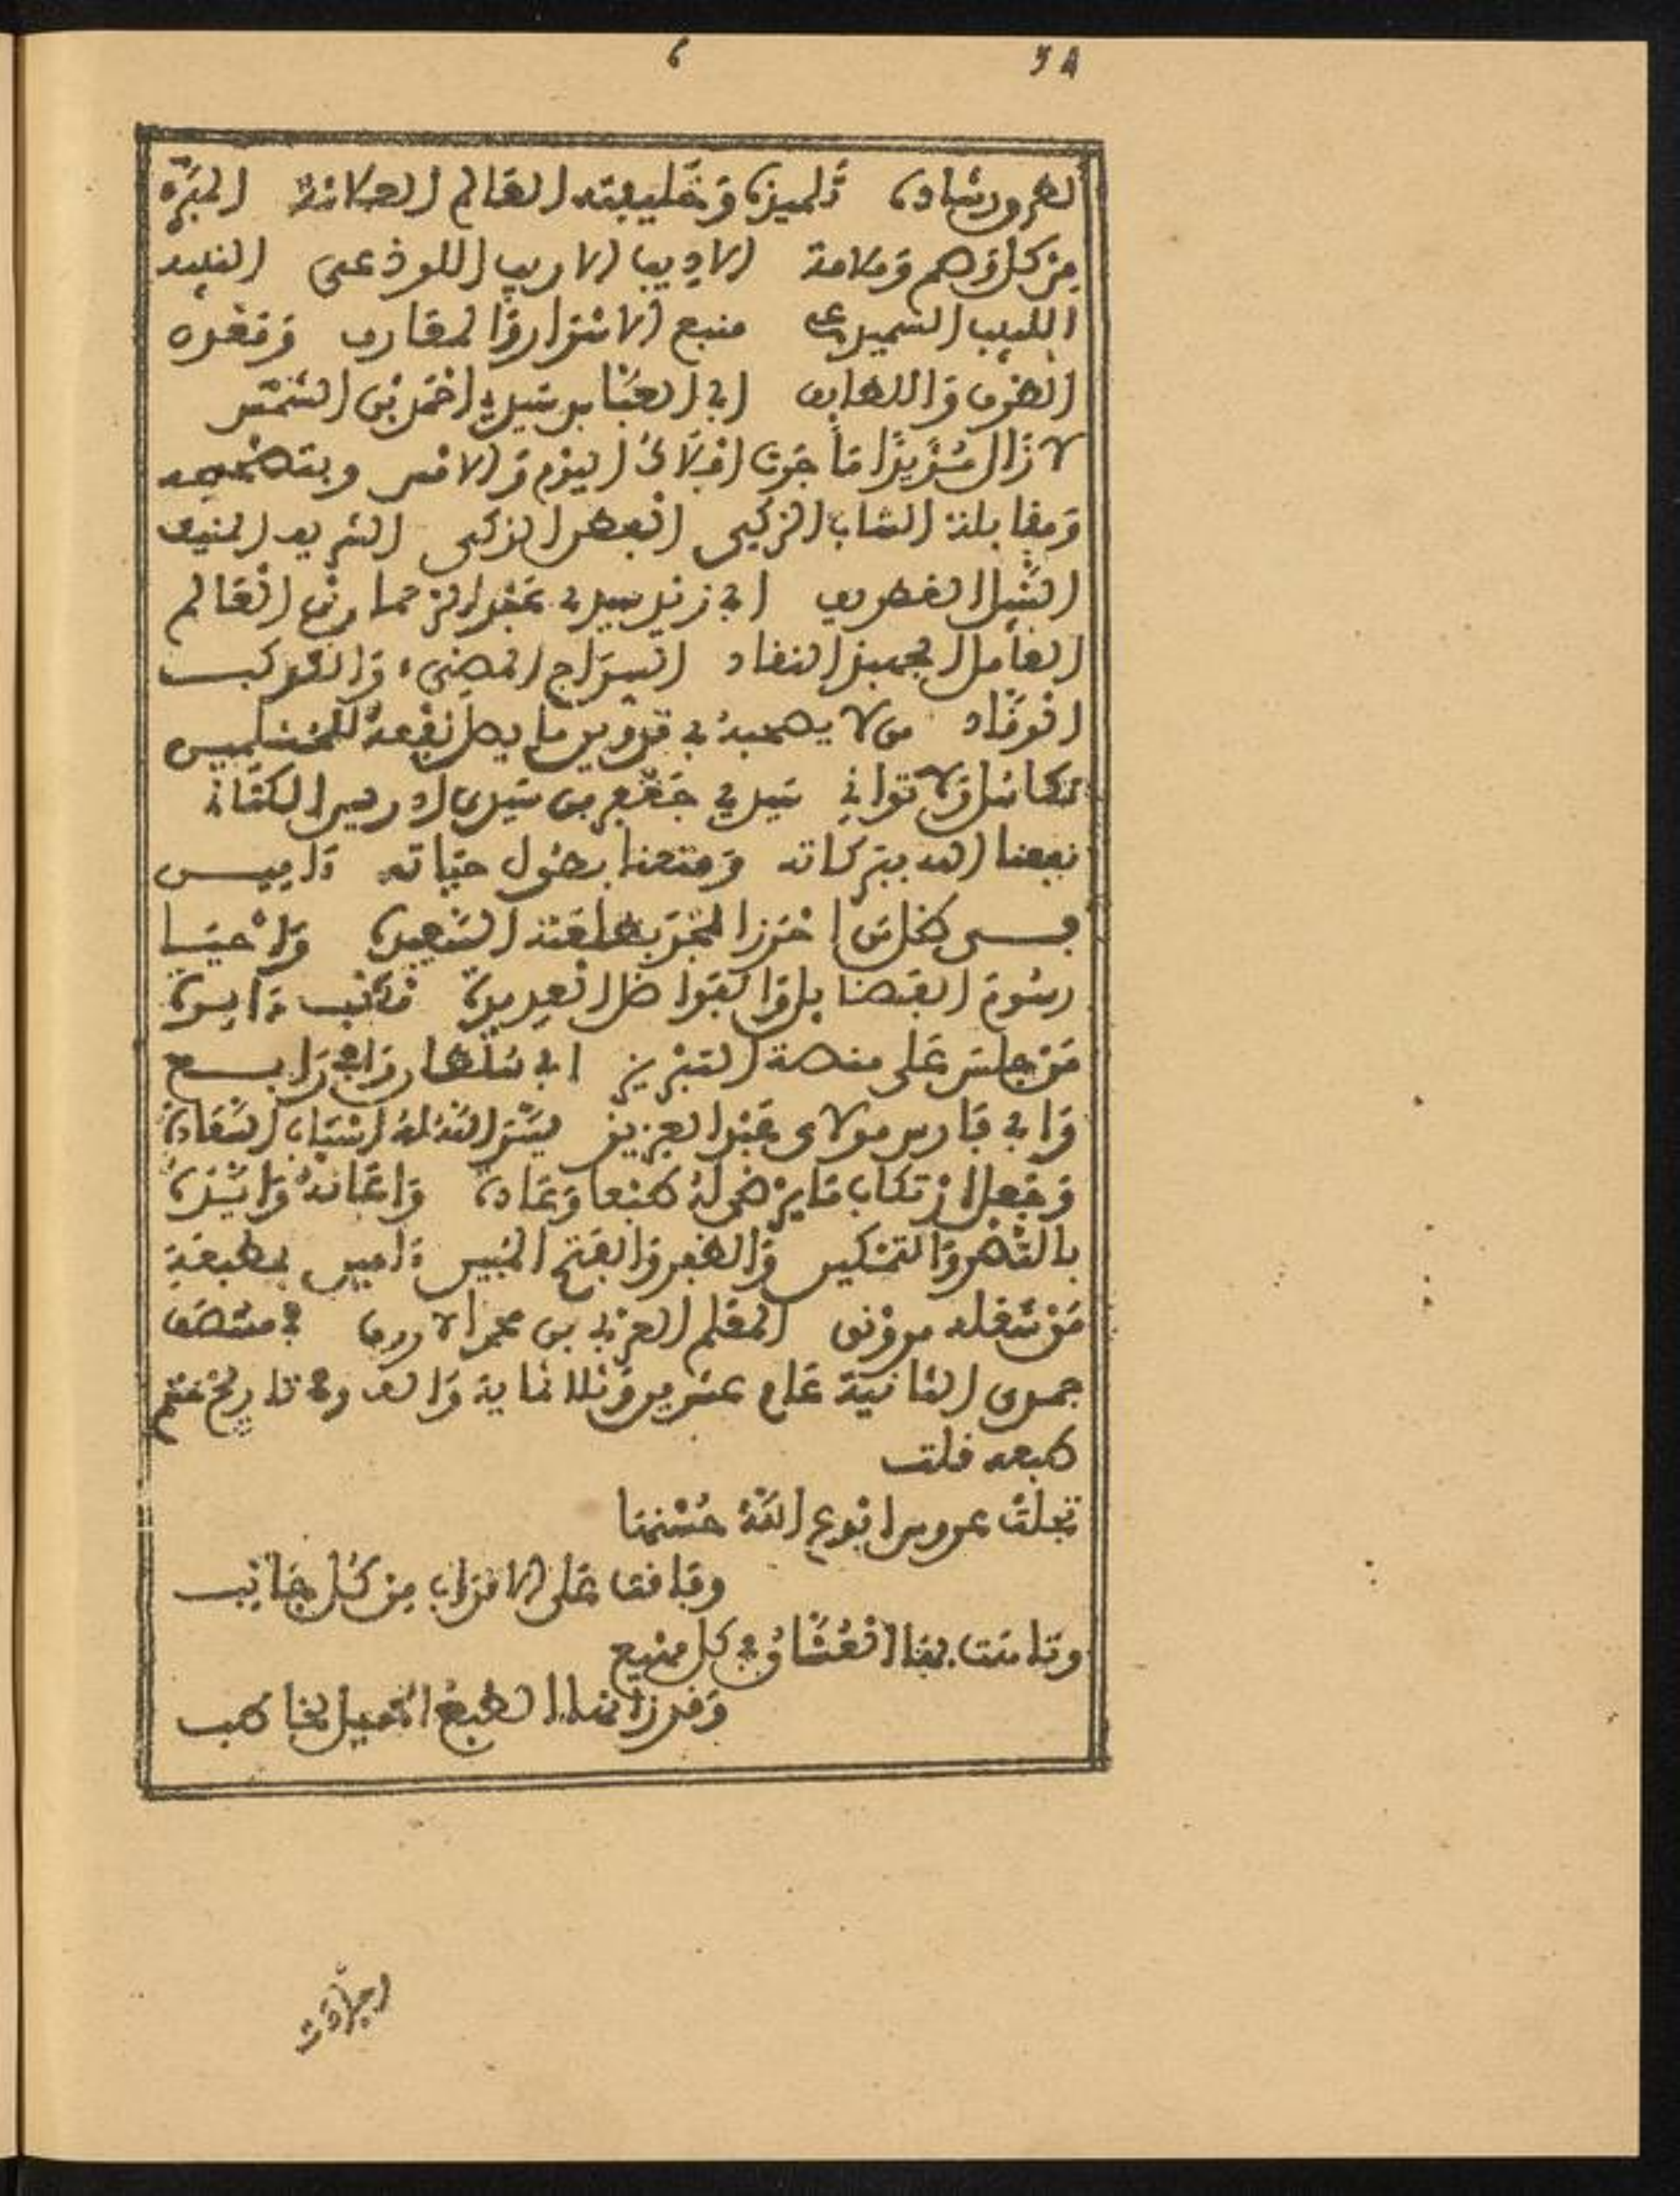 6 38
لهدي ورشاده تلميذه وخليفته العالم العلامة المبرء
من كل وهم وملامة الاديب الاريب اللوذعي النبيه
اللبيب السميدع منبع الاسرار والمعارف ومعدن
الظرف واللطايف ابي العباس سيدي احمد بن الشمس
لا زال سريرا ما جرت افلاك اليوم والامس وبتصحيحه
ومقابلة الشاب الزكي الفطن الذكي الشريف المنيف
الشبل الغطريف ابي زيد سيدي عبد الرحمان بن العالم
العامل الجهبذ النقاد السراج المضيء والكوكب
الوقاد من لا يصحبه في تدوين ما يصل نفعه للمسلمين
تكاسل ولا تواني سيدي جعفر بن سيدي ادريس الكتاني
نفعنا الله ببركاته ومتعنا بطول حياته ءامين
في ظل من احرز المجد بطلعته السعيدة واحيا
رسوم الفضايل والفواضل العديدة ءامين
من جلس على منصة التبريز ابي سلطان رابح رابح
وابي فارس مولاي عبد العزيز يسر الله له اسباب السعادة
وجعل ارتكاب ما يرضي له طبعا وعادة واعانه وايده
بالنصر والتمكين والظفر والفتح المبين ءامين بمطبعة
من شغله مرونق المعلم العربي بن محمد الازرق في منتصف
جمدى الثانية عام عشرين وثلاثماية والف وفي تاريخ ختم
طبعه قلت
تجلت عروس ابدع الله حسنها
وفاقت على الاقران من كل جانب
وتاهت بها العشاق في كل مهيع
وقد زانها الطبع الجميل لخاطب